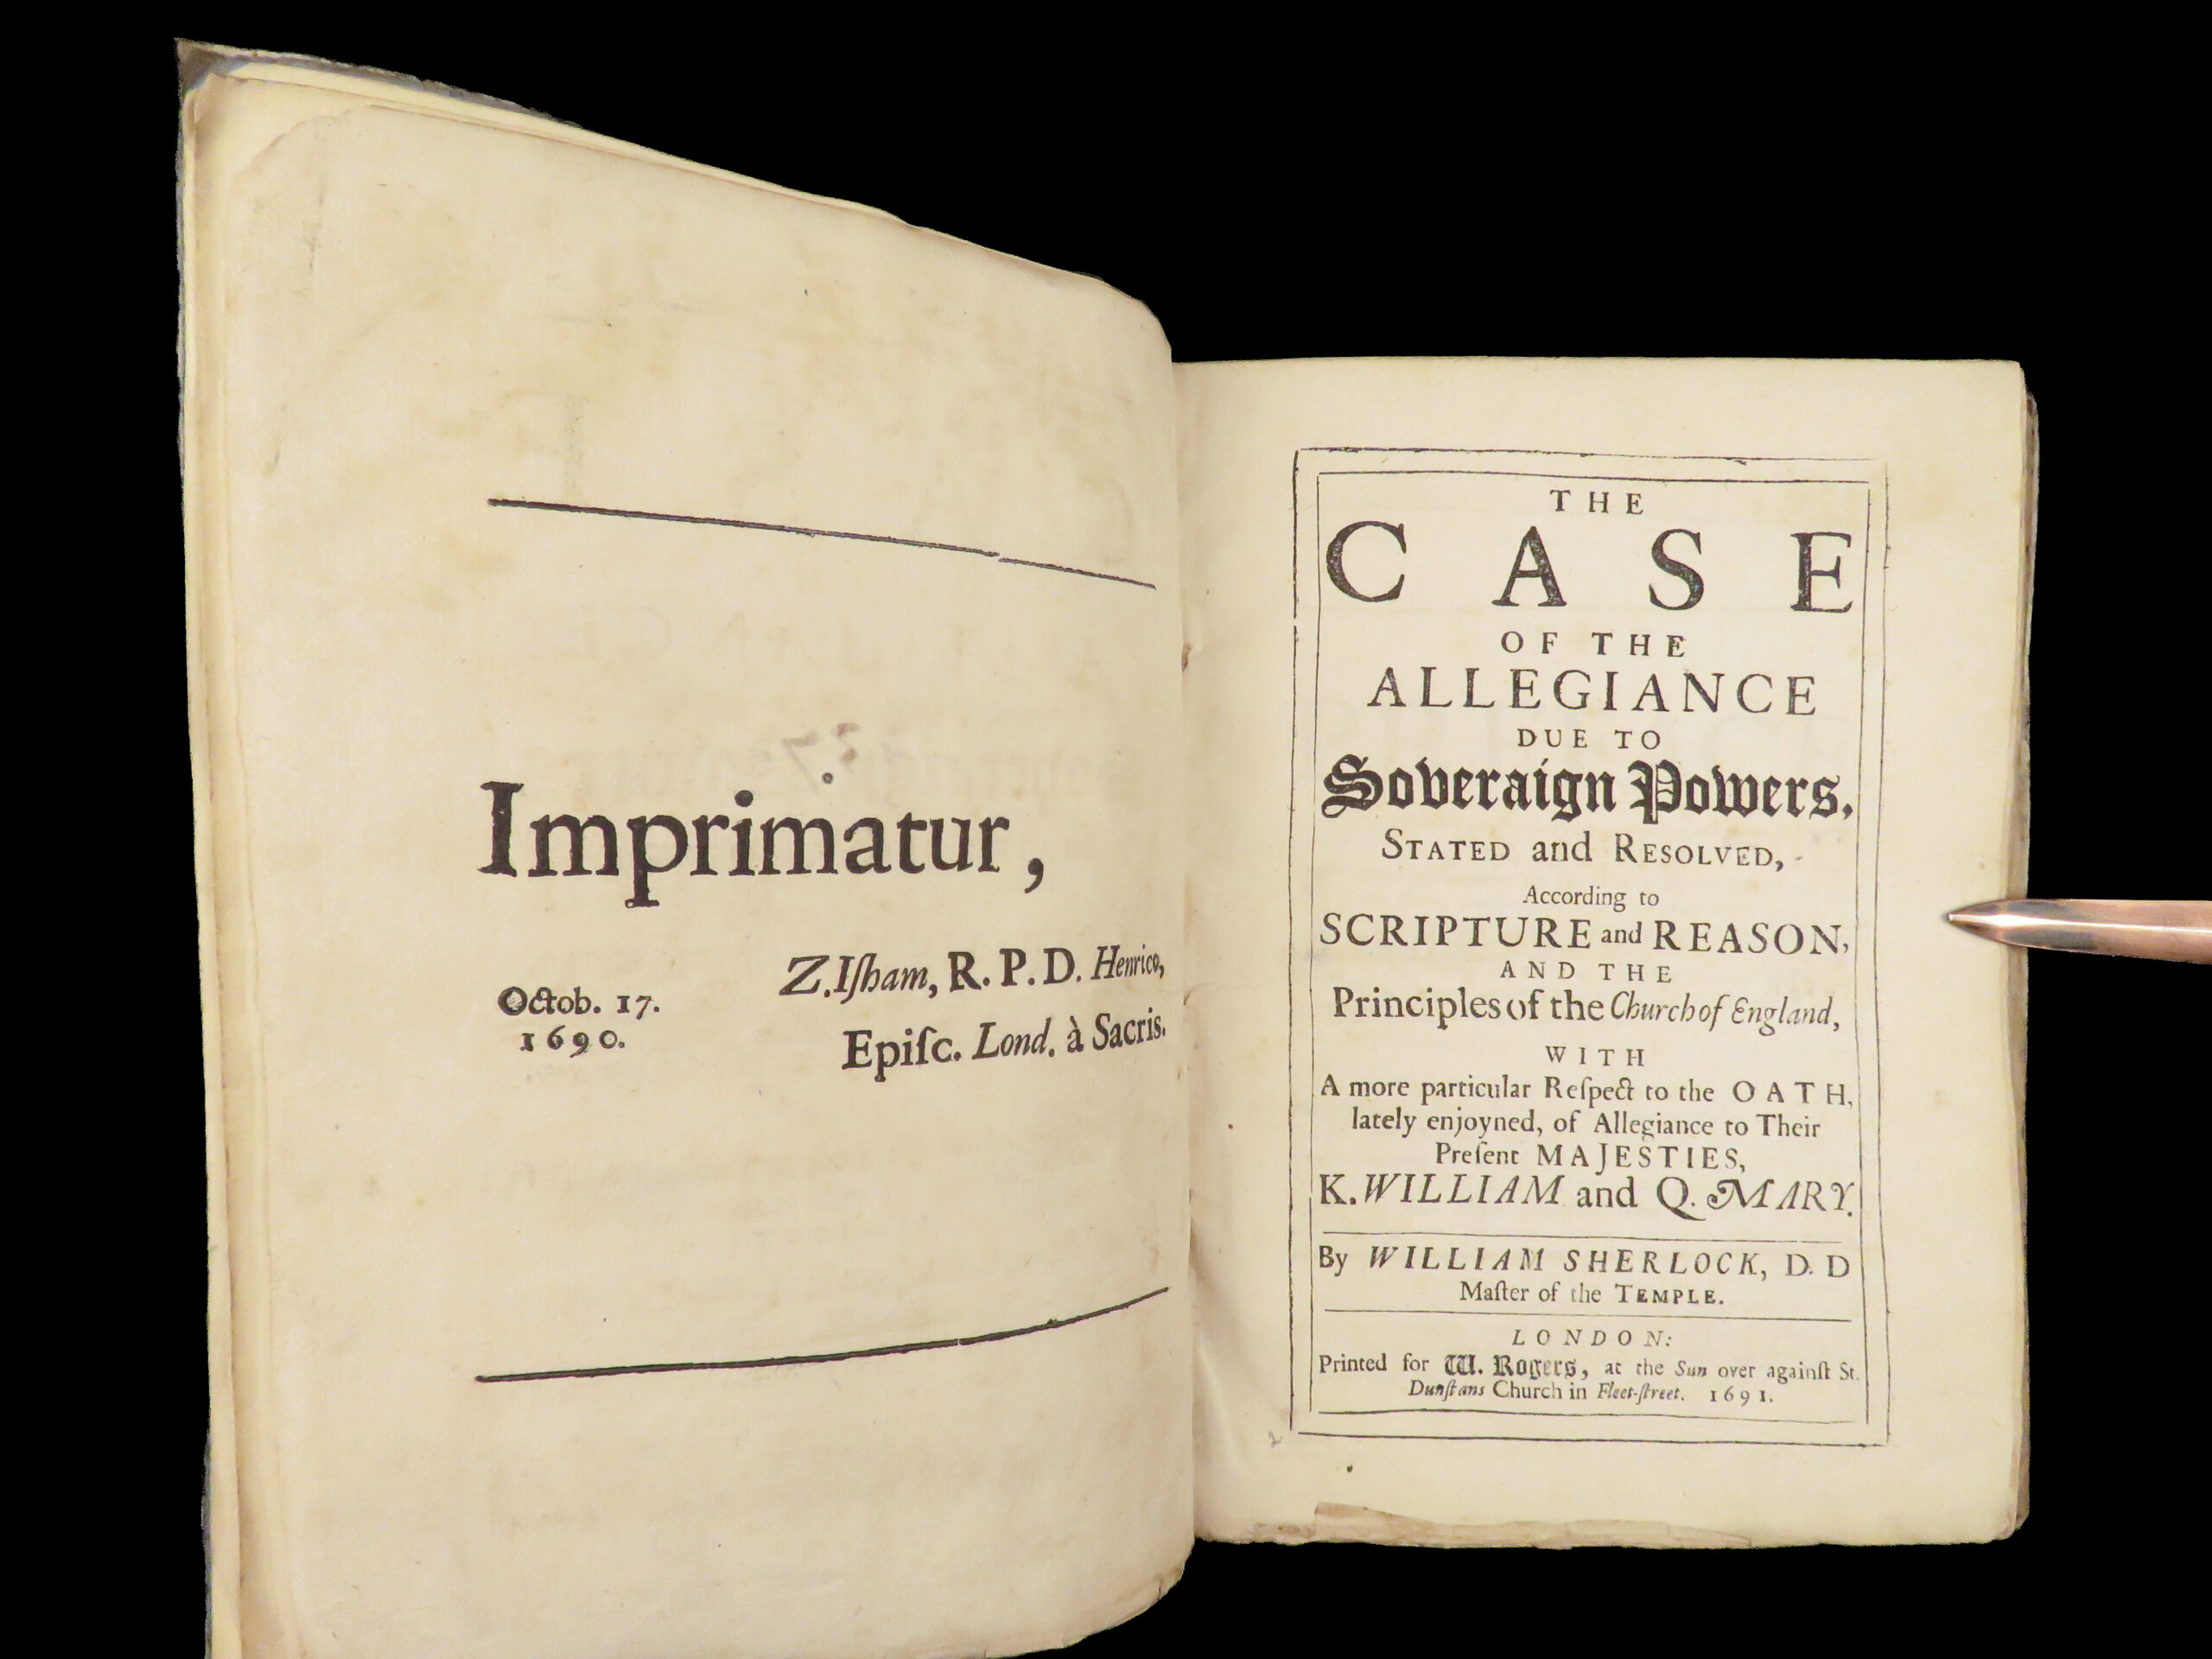 Imprimatur,
Octob. 17.
1690.
Z. Iſham, R. P. D. Henrico,
Epiſc. Lond. à Sacris.
THE
CASE
OF THE
ALLEGIANCE
DUE TO
Soveraign Powers,
STATED and RESOLVED,
According to
SCRIPTURE and REASON,
AND THE
Principles of the Church of England,
WITH
A more particular Reſpect to the OATH,
lately enjoyned, of Allegiance to Their
Preſent MAJESTIES,
K. WILLIAM and Q. MARY.
By WILLIAM SHERLOCK, D. D
Maſter of the TEMPLE.
LONDON:
Printed for W. Rogers, at the Sun over againſt St.
Dunſtans Church in Fleet-ſtreet. 1691.